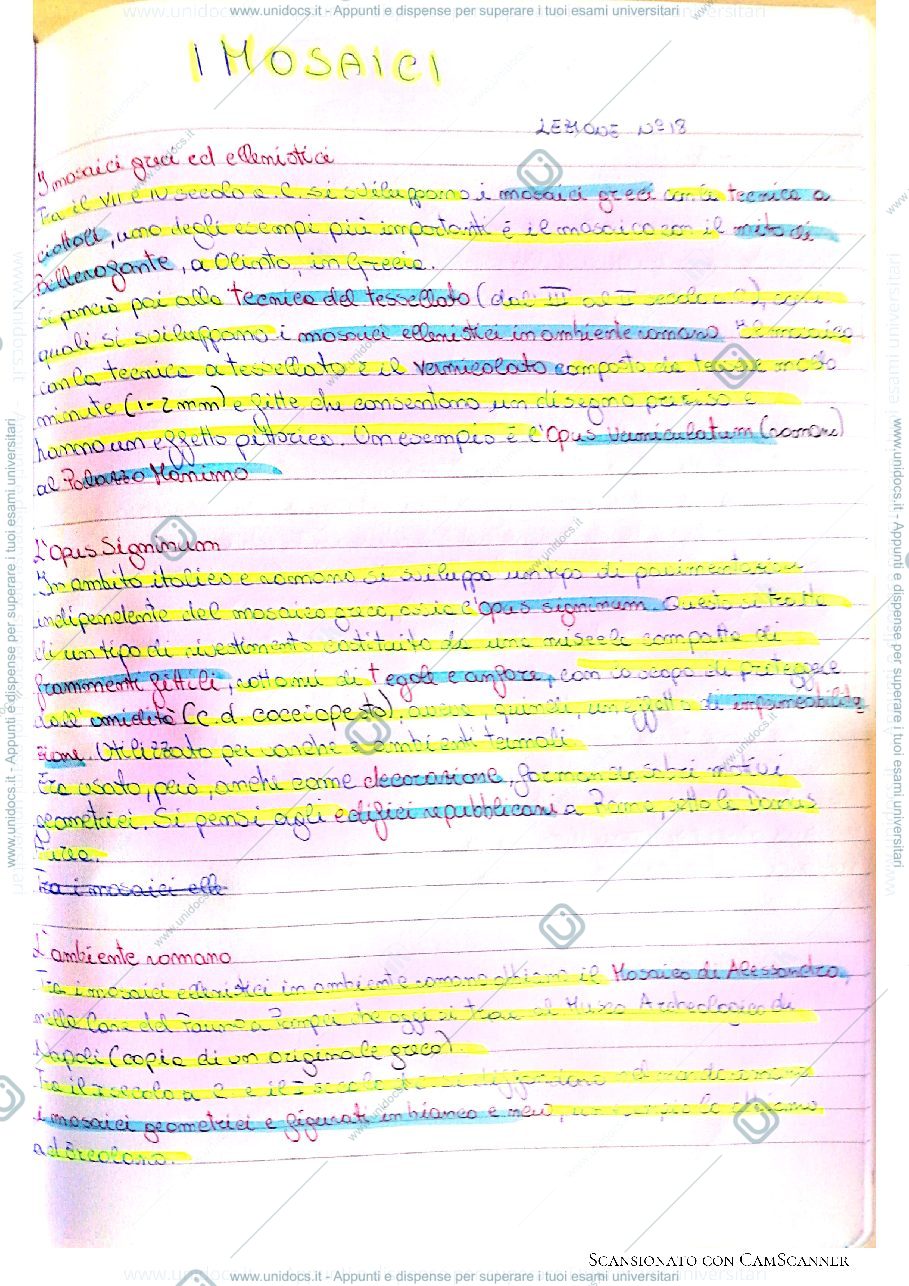 www.unidocs.it - Appunti e dispense per superare i tuoi esami universitari
I MOSAICI
LEZIONE N° 18
I mosaici greci ed ellenistici
Tra il VII e IV secolo a.C. si sviluppano i mosaici greci con la tecnica a
ciottoli, uno degli esempi più importanti è il mosaico con il mito di
Bellerofonte, a Olinto, in Grecia.
Si passerà poi alla tecnica del tessellato (dal III al I secolo a.C.), con i
quali si sviluppano i mosaici ellenistici in ambiente romano. Il mosaico
con la tecnica a tessellato è il vermicolato composto da tessere molto
minute (1-2 mm) e fitte che consentono un disegno preciso e
hanno un effetto pittorico. Un esempio è l'Opus vermiculatum (romano)
al Palazzo Massimo
L'Opus Signinum
In ambito italico e romano si sviluppa un tipo di pavimentazione
indipendente del mosaico greco, ossia l'opus signinum. Questo si tratta
di un tipo di rivestimento costituito da una miscela compatta di
frammenti fittili, rottami di tegole e anfore, con lo scopo di proteggere
dall'umidità (c.d. cocciopesto), aveva, quindi, un effetto di impermeabilizza
zione. Utilizzato per vasche e ambienti termali.
Era usato, però, anche come decorazione, formando sobri motivi
geometrici. Si pensi agli edifici repubblicani a Roma, sotto la Domus
Aurea.
Tra i mosaici elle
L'ambiente romano
Tra i mosaici ellenistici in ambiente romano abbiamo il Mosaico di Alessandro,
nella Casa del Fauno a Pompei che oggi si trova al Museo Archeologico di
Napoli (copia di un originale greco).
Tra il I secolo a.C. e il I secolo d.C. si diffondono nel mondo romano
i mosaici geometrici e figurati in bianco e nero, un esempio lo abbiamo
ad Ercolano.
SCANSIONATO CON CAMSCANNER
www.unidocs.it - Appunti e dispense per superare i tuoi esami universitari